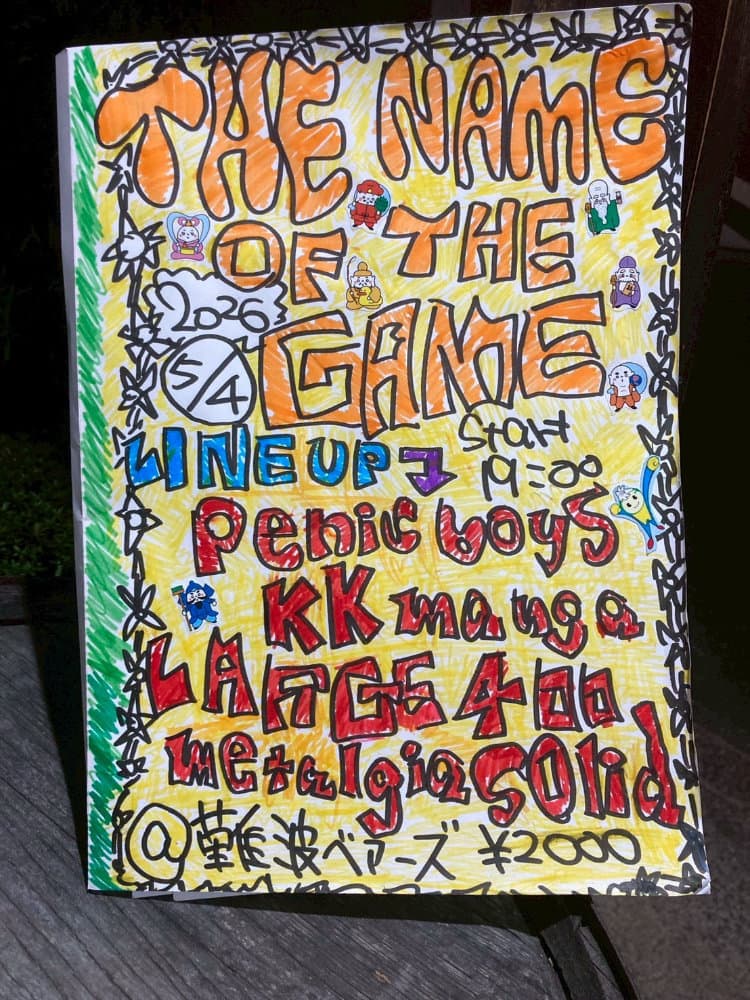 THE NAME
OF THE
2026
5/4
GAME
LINEUP
Start
19:00
Penic boys
KK manga
LARGE 400
metalgia solid
@難波ベアーズ ¥2000